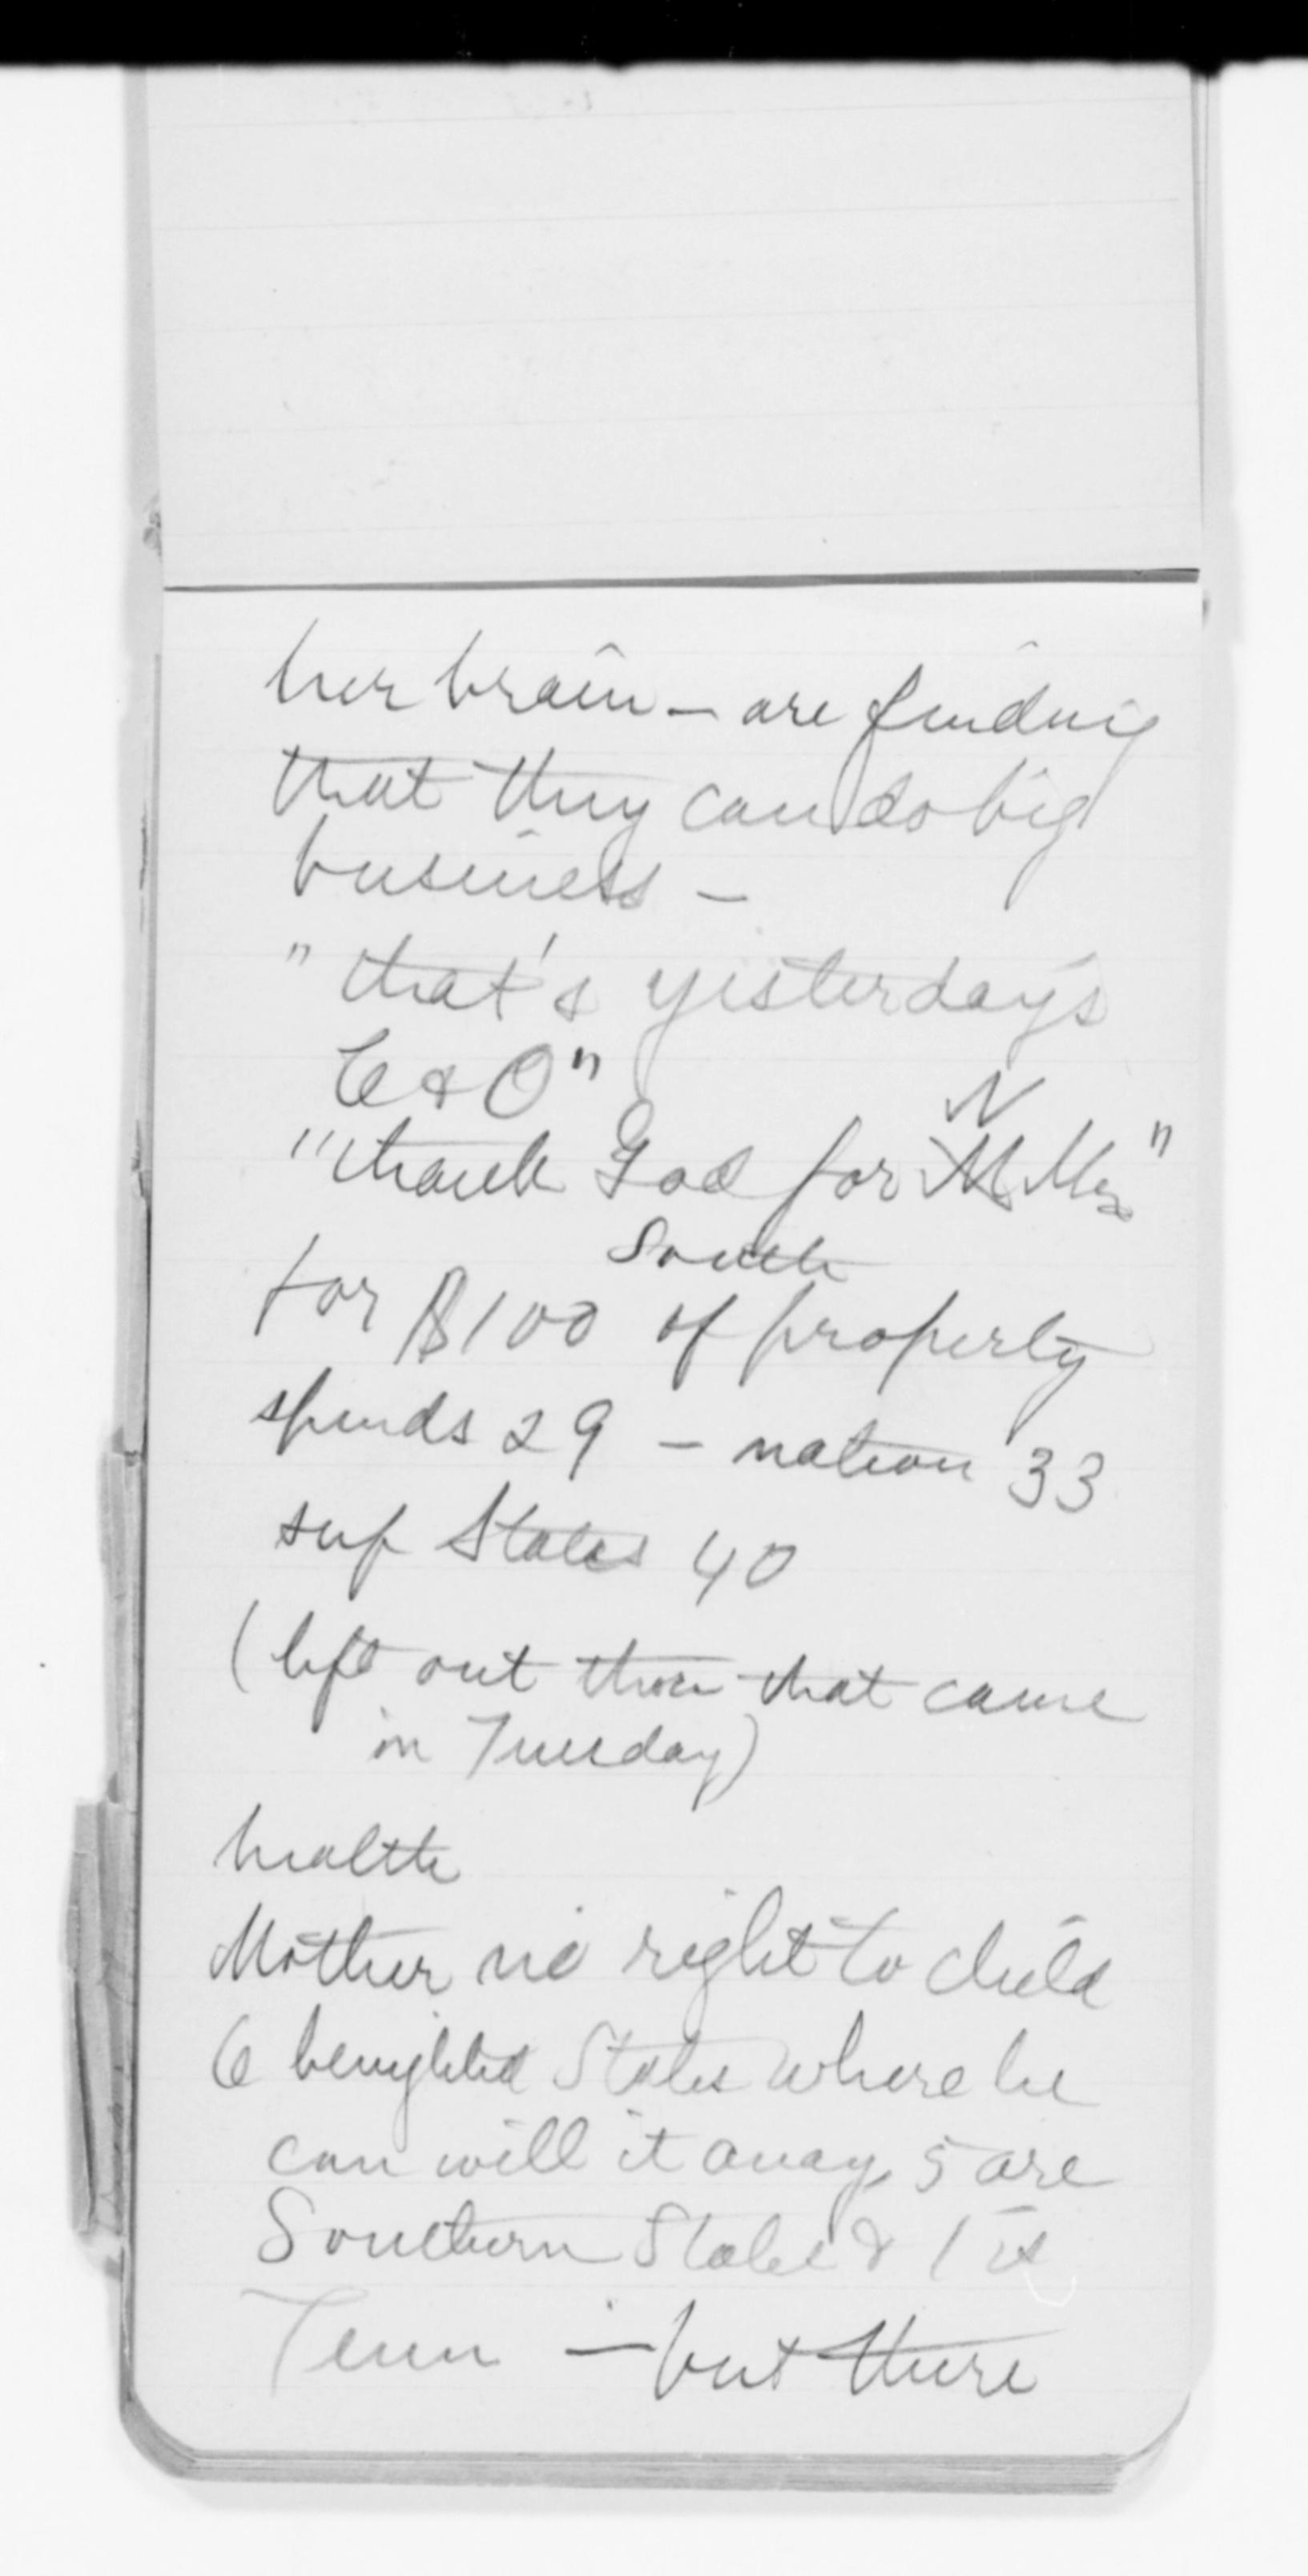 her brain — are finding
that they can do big
business —
"that's yisterday's
C & O"
N
"thank God for M Mex"
South
for $100 of property
spends 29 — nation 33
suf States 40
(left out those that came
in Tuesday)
health
Mother no right to child
6 benighted States where he
can will it away, 5 are
Southern States & 1 is
Tenn — but there